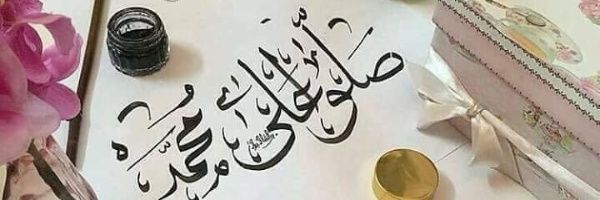 صلوا على محمد